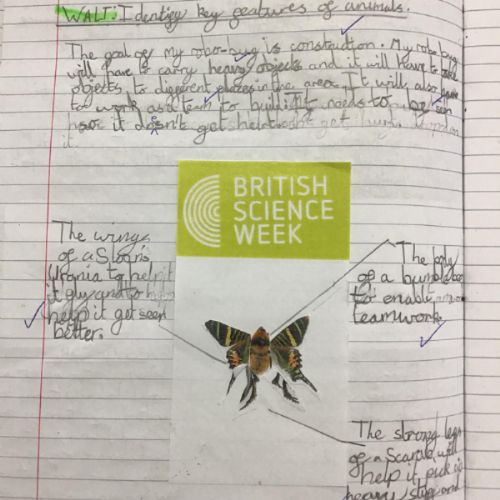 WALT: Identify key features of animals.
The goal of my robo-bug is construction. My robo bug
will have to carry heavy objects and it will have to take
objects to different places in the area. It will also have
to work as a team to build. It needs to be seen
so it doesn't get
it.
BRITISH
SCIENCE
WEEK
The wings
of a Sloan's
Urania to help it
it fly and to
help it get seen
better.
The body
of a bumblebee
to enable
teamwork.
The strong legs
of a Scarab will
help it pick up
heavy stuff and